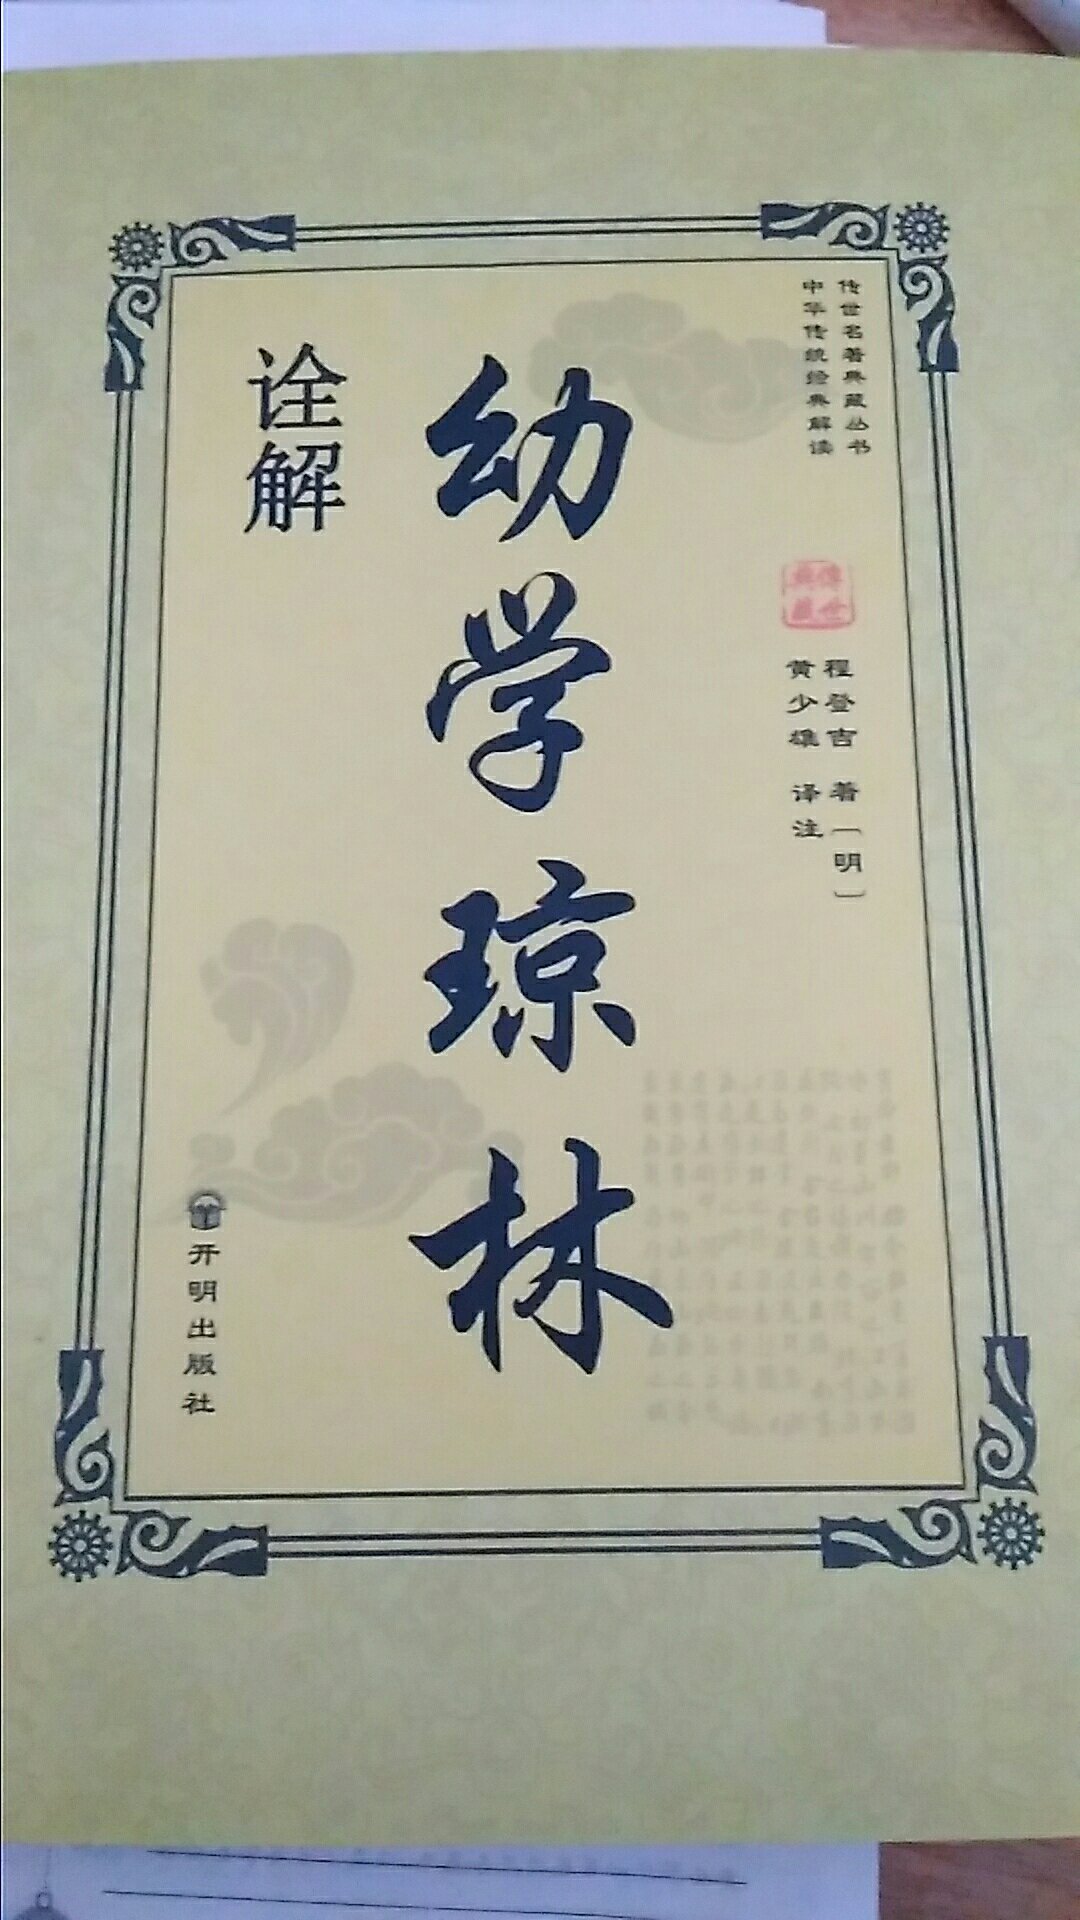 传世名著典藏丛书
中华传统经典解读
传世
典藏
程登吉 著〔明〕
黄少雄 译注
幼学琼林
诠解
开明出版社